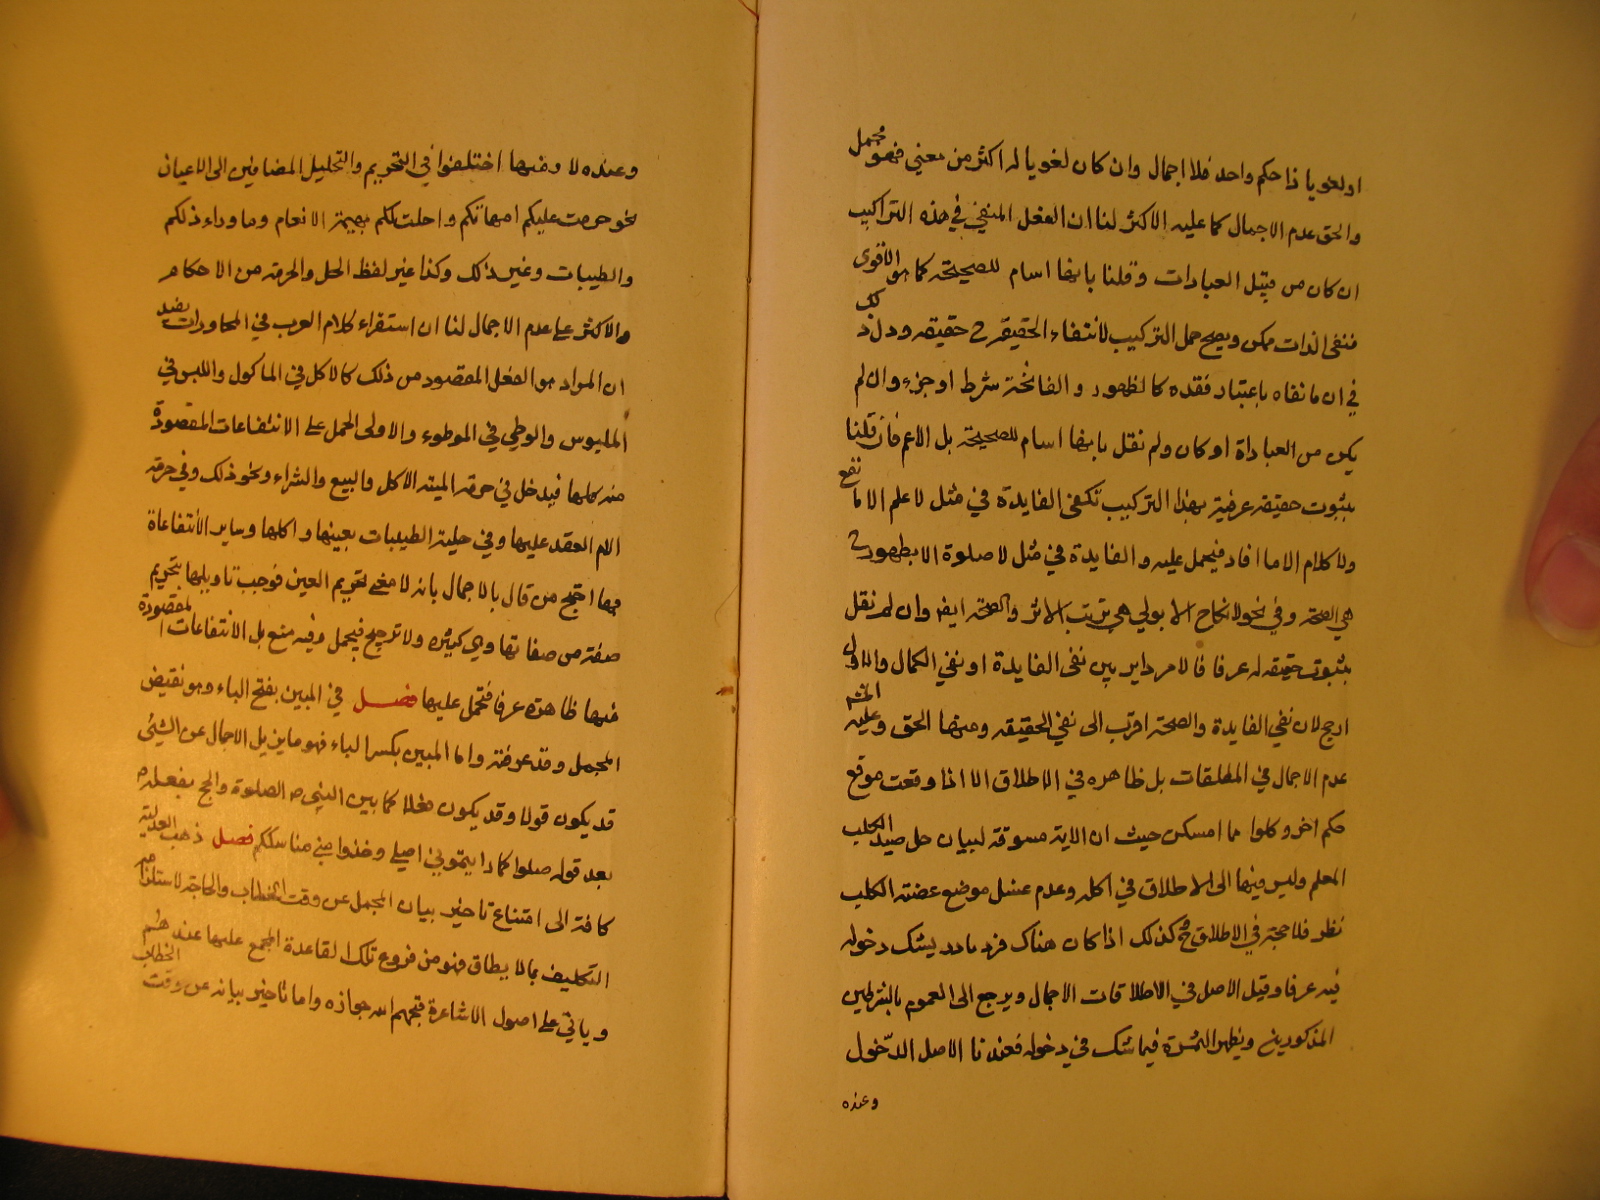 او لغويا ذا حكم واحد فلا اجمال وان كان لغويا له اكثر من معنى فهو مجمل
والحق عدم الاجمال كما عليه الاكثر لنا ان الفعل المنفي في هذه التراكيب
ان كان من قبيل العبادات وقلنا بانها اسام للصحيحة كما هو الاقوى
فنفى الذات ممكن ويصح حمل التركيب لانتفاء الحقيقة ح حقيقة ودل ذلك
في ان ما نفاه باعتبار فقده كالطهور والفاتحة شرط او جزء وان لم
يكن من العباداة او كان ولم نقل بانها اسام للصحيحة بل الاعم فأن قلنا
بثبوت حقيقة عرفية بهذا التركيب تكفى الفايدة في مثل لا علم الا ما نفع
ولا كلام الا ما افاد فيحمل عليه والفايدة في مثل لا صلوة الا بطهور ح
هي الصحة وفي نحو لا نكاح الا بولي هي ترتب الاثر والصحة ايضا وان لم نقل
بثبوت حقيقة له عرفا فالامر داير بين نفى الفايدة او نفي الكمال والاول
ارجح لان نفي الفايدة والصحة اقرب الى نفي الحقيقة ومنها الحق وعليه
عدم الاجمال في المطلقات بل ظاهره في الاطلاق الا اذا وقعت موقع
حكم اخر وكلوا مما امسكن حيث ان الاية مسوقة لبيان حل صيد الكلب
المعلم وليس فيها الى الاطلاق في اكله وعدم غسل موضع عضته الكلب
نظر فلا حجة في الاطلاق ح كذلك اذا كان هناك فرد نادر يشك دخوله
فيه عرفا وقيل الاصل في الاطلاقات الاجمال ويرجع الى العموم بالشرطين
المذكورين ويظهر الثمرة فيما شك في دخوله فعندنا الاصل الدّخول
وعنده
وعنده لا ومنها اختلفوا في التحريم والتحليل المضافين الى الاعيان
نحو حرمت عليكم امهاتكم واحلت لكم بهيمة الانعام وما وراء ذلكم
والطيبات وغير ذلك وكذا غير لفظ الحل والحرمة من الاحكام
والاكثر على عدم الاجمال لنا ان استقراء كلام العرب في المحاورات يفيد
ان المراد هو الفعل المقصود من ذلك كالاكل في الماكول واللبس في
الملبوس والوطي في الموطوء والاولى الحمل على الانتفاعات المقصودة
منه كلها فيدخل في حرمة الميتة الاكل والبيع والشراء ونحو ذلك وفي حرمة
الام العقد عليها وفي حلية الطيبات بعينها واكلها وساير الأنتفاعاة
بها احتج من قال بالاجمال بانه لا معنى لتحريم العين فوجب تاويلها بتحريم
صفة من صفاتها وهي كثيرة ولا ترجيح فيجمل وفيه منع بل الانتفاعات المقصودة
منها ظاهرة عرفا فتحمل عليها فصل في المبين بفتح الباء وهو نقيض
المجمل وقد عرفته واما المبين بكسر الباء فهو ما يزيل الاجمال عن الشئ
قد يكون قولا وقد يكون فعلا كما بين النبي ص الصلوة والحج بفعله ص
بعد قوله صلوا كما رايتموني اصلي وخذوا عني مناسككم فصل ذهب العدلية
كافة الى امتناع تاخير بيان المجمل عن وقت الخطاب والحاجة لاستلزامه
التكليف بما لا يطاق فهو من فروع تلك القاعدة المجمع عليها عندهم
وياتي على اصول الاشاعرة فتجهم الله جوازه واما تاخير بيانه عن وقت الخطاب